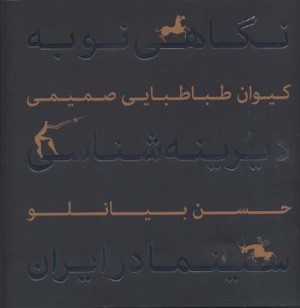 نگاهی نو به
کیوان طباطبایی صمیمی
دیرینه‌شناسی
حسن بیانلو
سینما در ایران